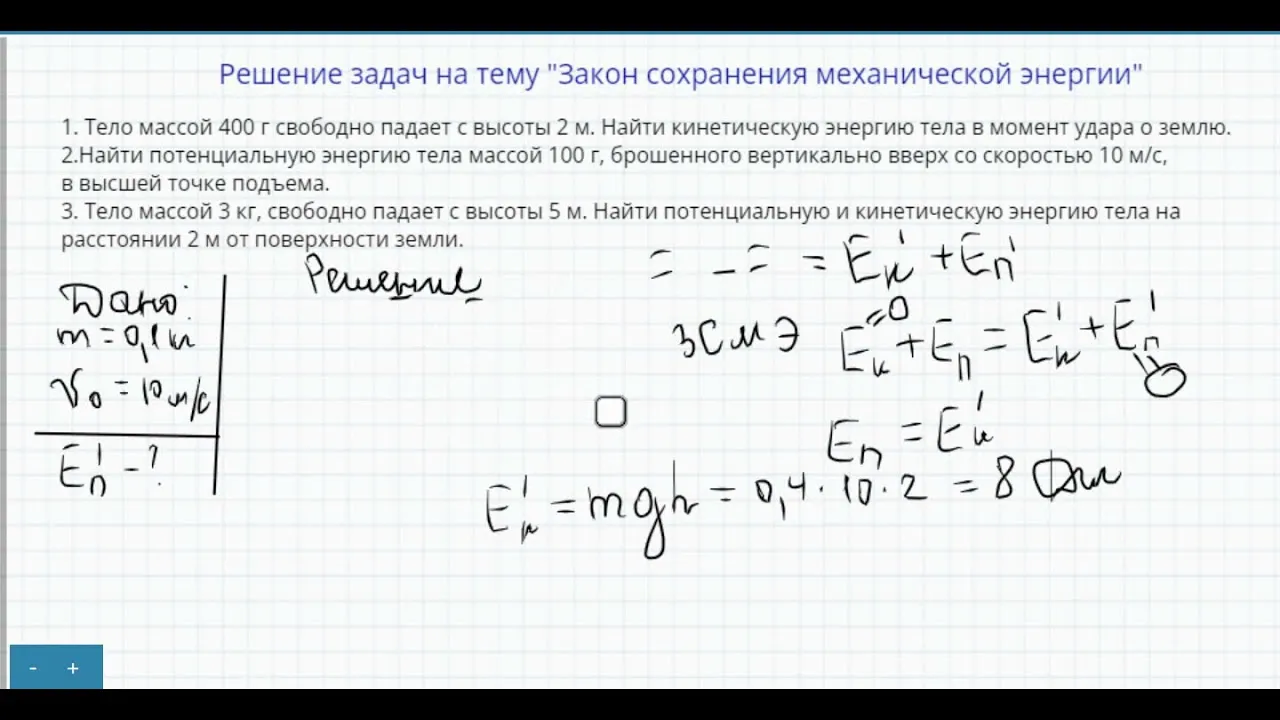 Решение задач на тему "Закон сохранения механической энергии"
1. Тело массой 400 г свободно падает с высоты 2 м. Найти кинетическую энергию тела в момент удара о землю.
2.Найти потенциальную энергию тела массой 100 г, брошенного вертикально вверх со скоростью 10 м/с,
в высшей точке подъема.
3. Тело массой 3 кг, свободно падает с высоты 5 м. Найти потенциальную и кинетическую энергию тела на
расстоянии 2 м от поверхности земли.
Дано:
m = 0,1 кг
V₀ = 10 м/с
Eп' - ?
Решение
= - = = Eк' + Eп'
ЗСМЭ Eк=0 + Eп = Eк' + Eп'
Eп = Eк'
Eк' = mgh = 0,4 · 10 · 2 = 8 Дж
- +